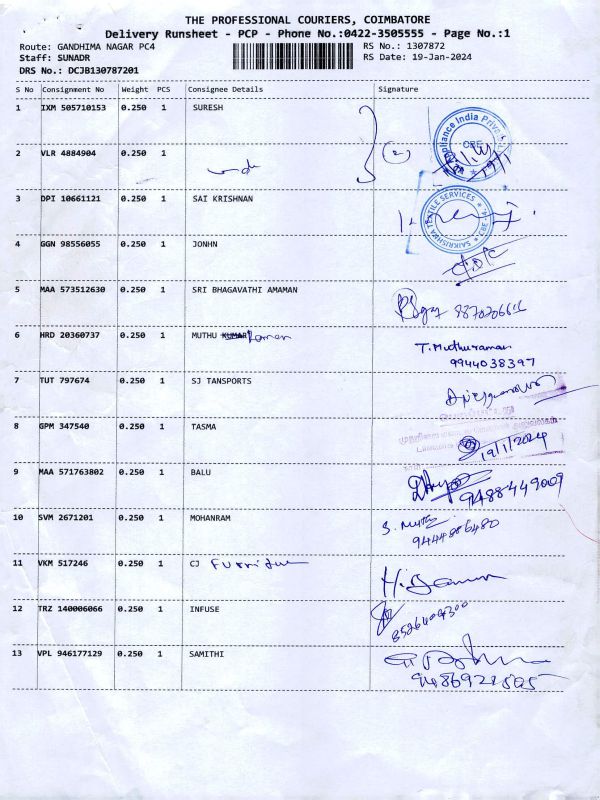 THE PROFESSIONAL COURIERS, COIMBATORE
Delivery Runsheet - PCP - Phone No.:0422-3505555 - Page No.:1
Route: GANDHIMA NAGAR PC4 RS No.: 1307872
Staff: SUNADR RS Date: 19-Jan-2024
DRS No.: DCJB130787201
S No Consignment No Weight PCS Consignee Details Signature
1 IXM 505710153 0.250 1 SURESH
2 VLR 4884904 0.250 1 (2)
3 DPI 10661121 0.250 1 SAI KRISHNAN
SAIKRISHNA TEXTILE SERVICES
4 GGN 98556055 0.250 1 JONHN
5 MAA 573512630 0.250 1 SRI BHAGAVATHI AMAMAN
6 HRD 20360737 0.250 1 MUTHU KUMAR Raman T. Muthuraman
9944038397
7 TUT 797674 0.250 1 SJ TANSPORTS
8 GPM 347540 0.250 1 TASMA 19/1/2024
9 MAA 571763802 0.250 1 BALU
9488449009
10 SVM 2671201 0.250 1 MOHANRAM
9444886480
11 VKM 517246 0.250 1 CJ
12 TRZ 140006066 0.250 1 INFUSE
8526409300
13 VPL 946177129 0.250 1 SAMITHI